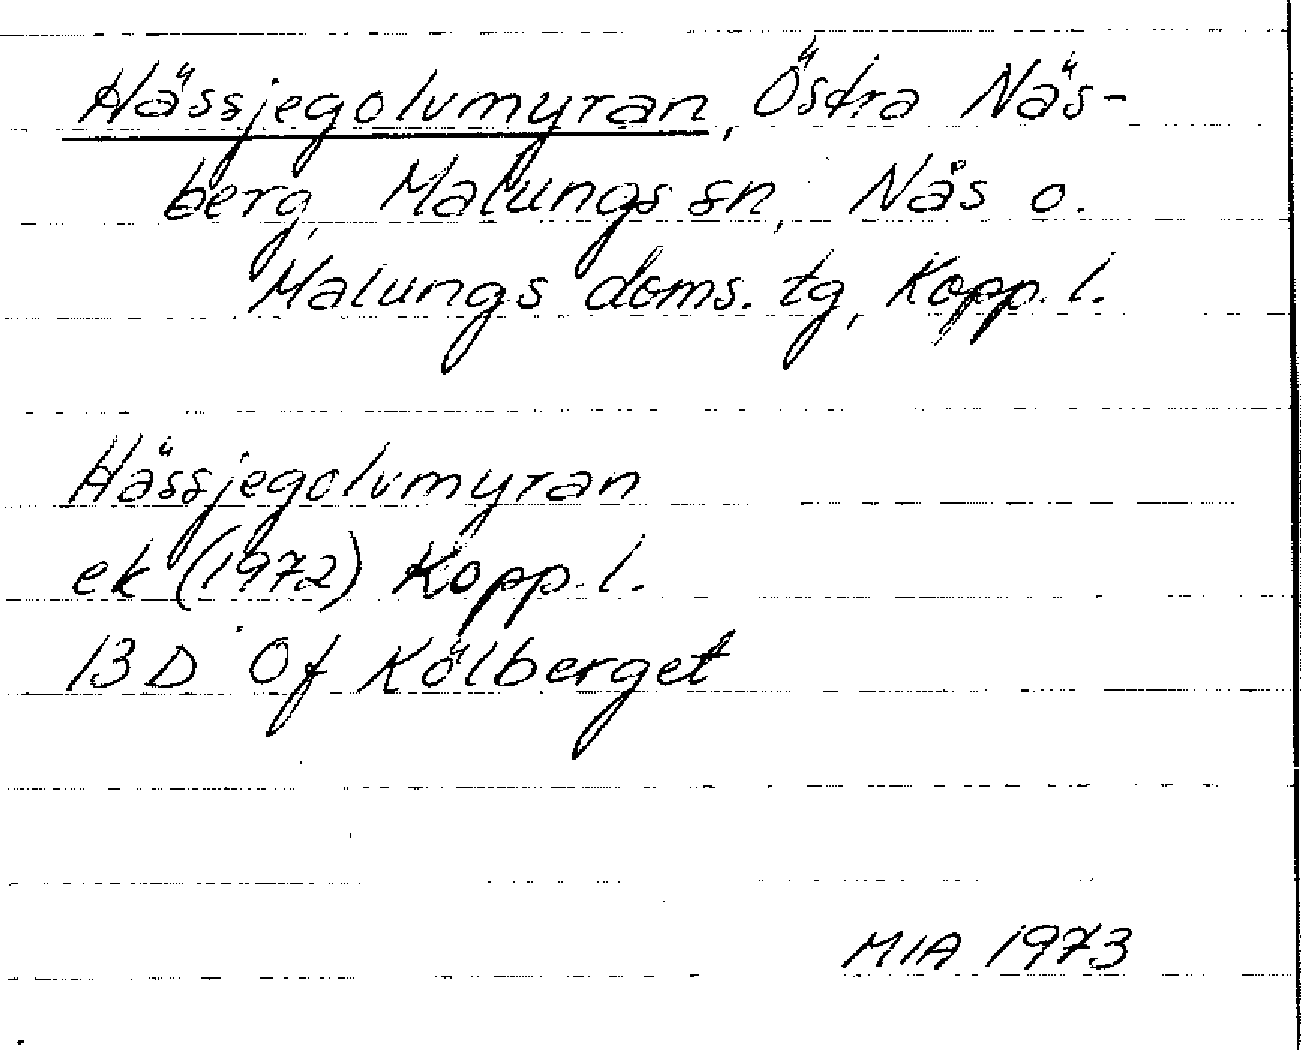 Hässjegolvmyran, Östra Näs-
berg, Malungs sn, Nås o.
Malungs doms. tg, Kopp. l.
Hässjegolvmyran
ek (1972) Kopp. l.
13 D 0f Kölberget
MIA 1973